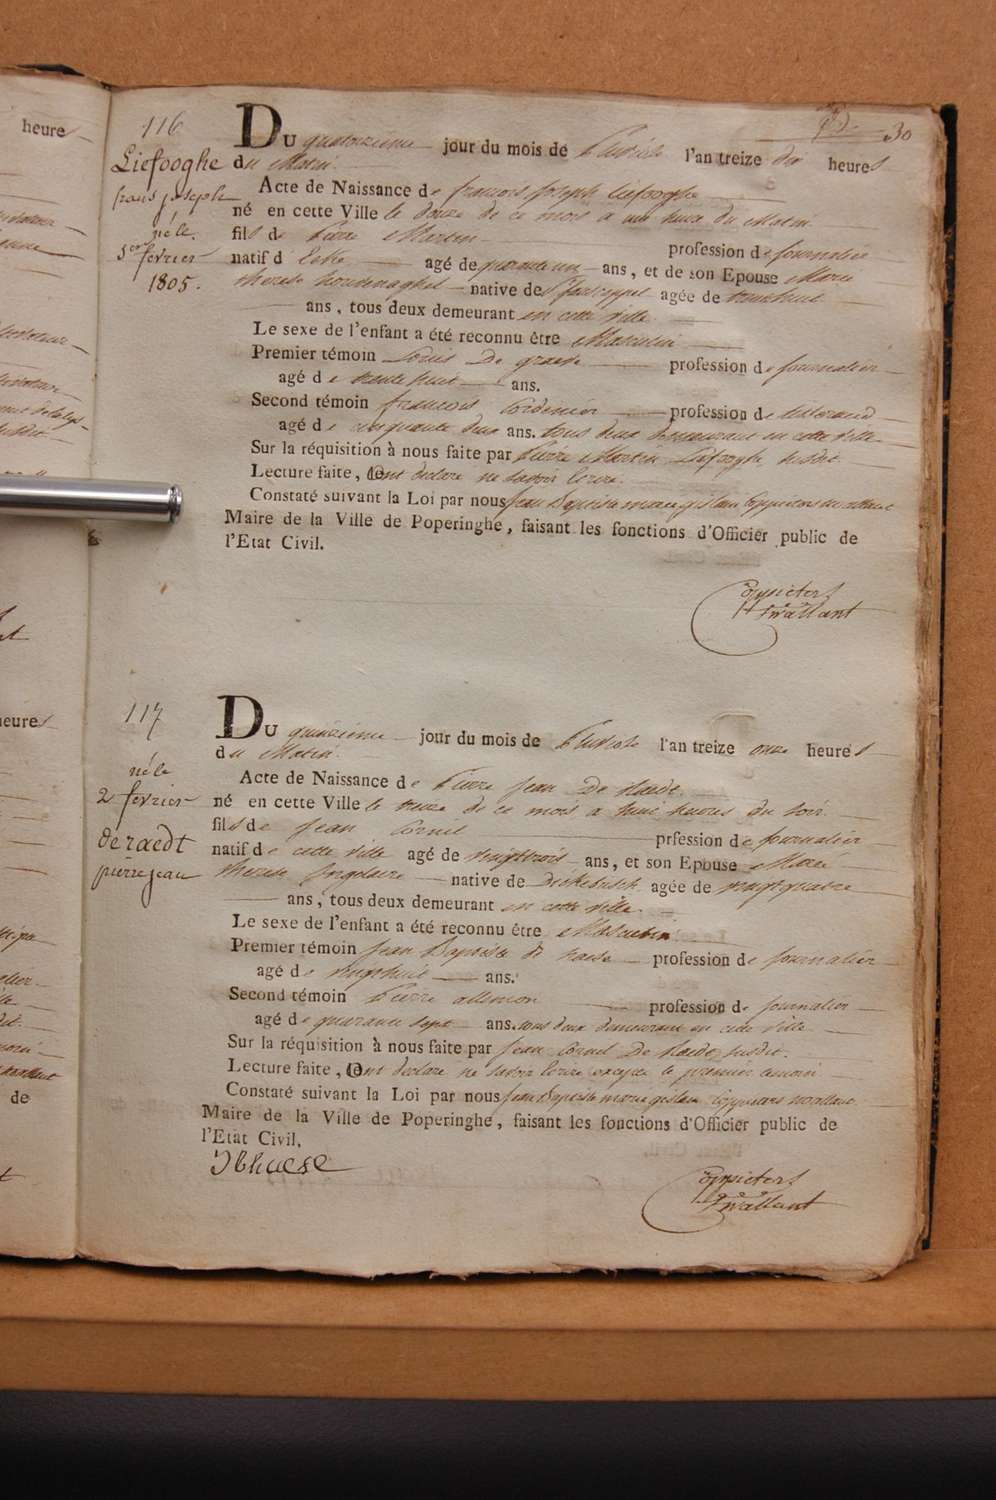 heure
30
116
Liefooghe
frans joseph
né le
1er fevrier
1805.
Du quatorzieme jour du mois de Pluviose l'an treize dix heures
du Matin
Acte de Naissance de françois joseph Liefooghe
né en cette Ville le douze de ce mois a une heure du Matin
fils de Pierre Martin profession de journalier
natif d agé de quarante un ans, et de son Epouse Marie
therese native de agée de trentehuit
ans, tous deux demeurant en cette ville
Le sexe de l'enfant a été reconnu être Masculin
Premier témoin Louis De graeve profession de journalier
agé de trente huit ans.
Second témoin françois Cordenier profession de tisserand
agé de cinquante deux ans. tous deux demeurant en cette ville
Sur la réquisition à nous faite par Pierre Martin Liefooghe susdit
Lecture faite, ont declaré ne savoir ecrire.
Constaté suivant la Loi par nous Jean Baptiste marie gislain Coppieters wallant
Maire de la Ville de Poperinghe, faisant les fonctions d'Officier public de
l'Etat Civil.
Coppieters
Twallant
heures
117
né le
2 fevrier
de raedt
pierre jean
Du quinzieme jour du mois de Pluviose l'an treize onze heures
du Matin
Acte de Naissance de Pierre Jean De Raedt
né en cette Ville le treize de ce mois a huit heures du soir
fils de Jean Cornil prfession de journalier
natif de cette ville agé de vingttrois ans, et son Epouse Marie
therese Ingelaere native de Dickebusch agée de vingtquatre
ans, tous deux demeurant en cette ville.
Le sexe de l'enfant a été reconnu être Masculin
Premier témoin Jean Baptiste de haese profession de journalier
agé de vingthuit ans.
Second témoin Pierre allemon profession de journalier
agé de quarante sept ans. tous deux demeurant en cette ville
Sur la réquisition à nous faite par Jean Cornil De Raedt susdit.
Lecture faite, ont declaré ne savoir ecrire excepté le premier temoin
Constaté suivant la Loi par nous Jean Baptiste marie gislain Coppieters wallant
Maire de la Ville de Poperinghe, faisant les fonctions d'Officier public de
l'Etat Civil.
Coppieters
Twallant
de